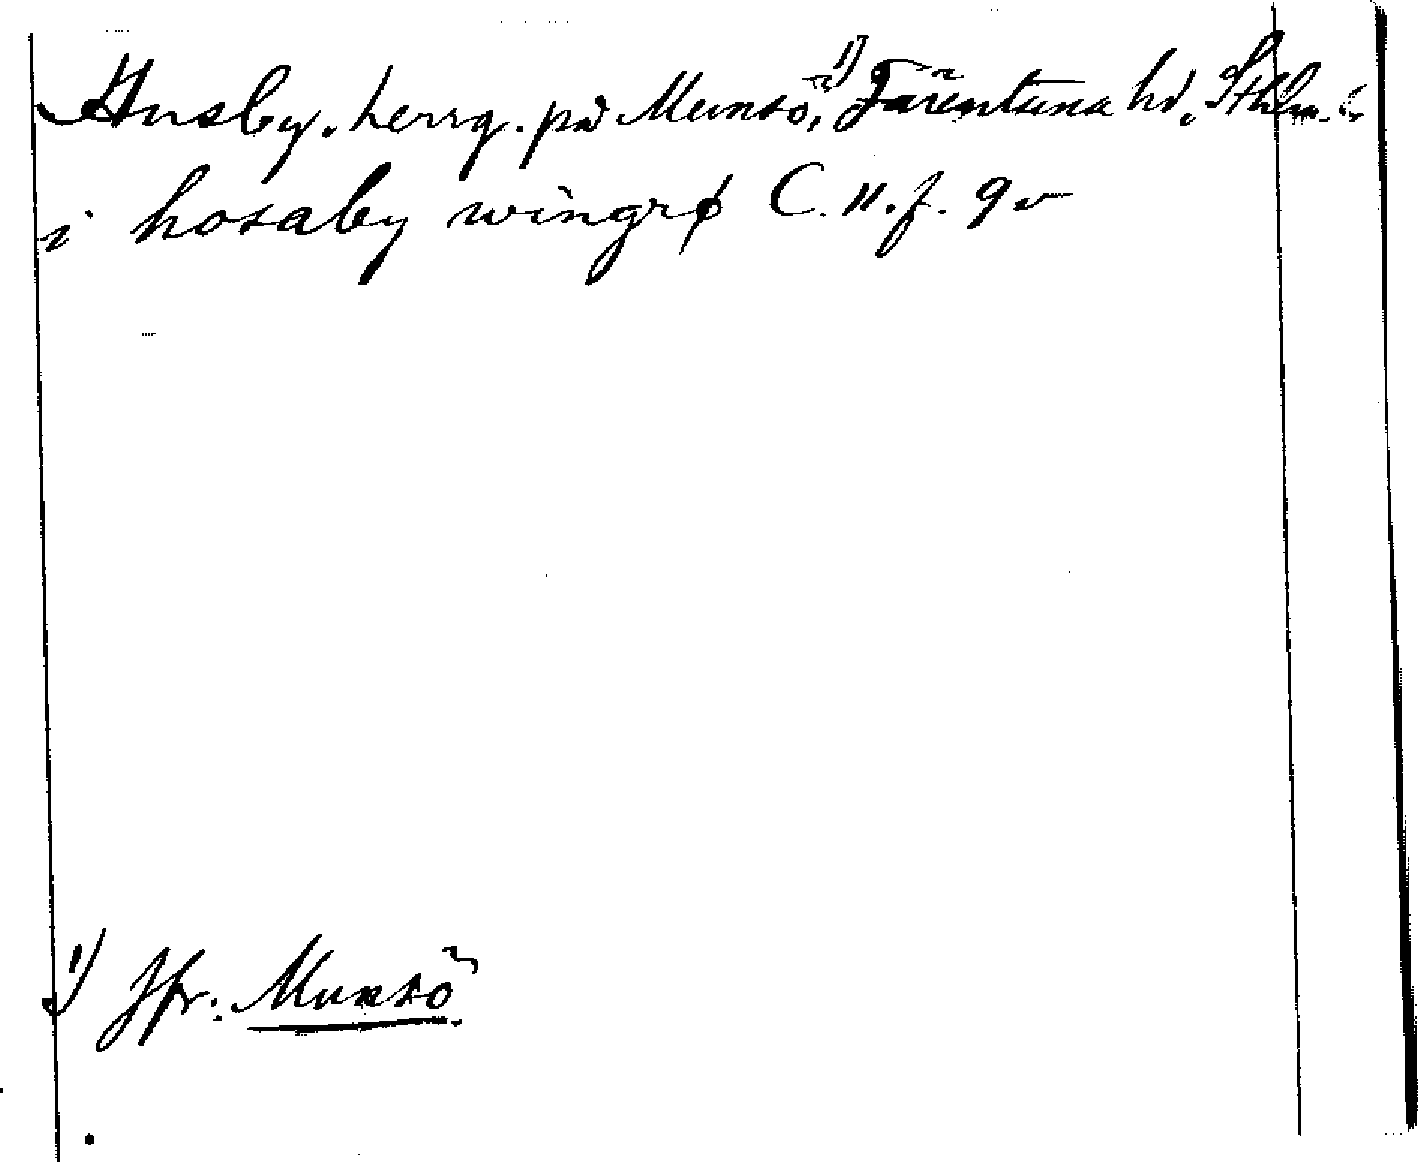 Husby. herrg. på Munsö,¹⁾ Färentuna hd, Sthlm. l.
i hosaby wingrø C. 11. f. 9 v
1) Jfr. Munsö